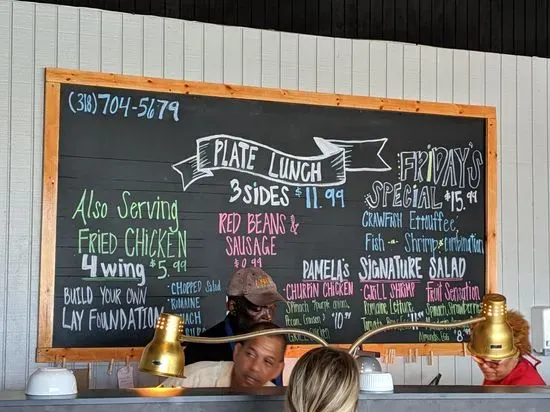 (318)704-5679
PLATE LUNCH
3 SIDES $11.99
FRIDAY'S
SPECIAL $15.99
CRAWFISH Etouffee,
Fish - a - Shrimp combination
Also Serving
FRIED CHICKEN
4 wing $5.99
BUILD YOUR OWN
LAY FOUNDATION
-CHOPPED Salad
-ROMAINE
-SPINACH
RED BEANS &
SAUSAGE
PAMELA'S SIGNATURE SALAD
CHURPIN CHICKEN
Spinach, Purple onion,
Pecan,
10
GRILL SHRIMP
Tomato
Romaine Lettuce
Fruit Sensation
Spinach, Strawberries
Almonds, Egg